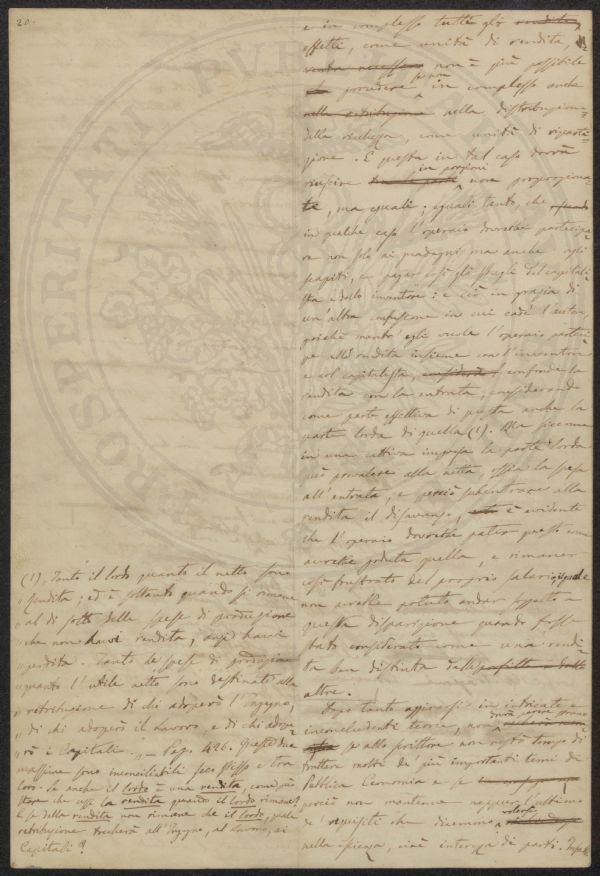 20.
e in complesso tutti gli
effetti, come unità di rendita,
non è più possibile
procedere se non in complesso anche
nella distribuzione
della ricchezza, come unità di riparti-
zione. E questa in tal caso dovrà
riuscire in porzioni non proporziona-
te, ma eguali; eguali tanto, che
in qualche caso l'operaio dovrebbe partecipa-
re non solo ai guadagni ma anche agli
scapiti, e pagar così gli sbagli del capitali-
sta e dello inventore: e ciò in grazia di
un'altra confusione in cui cade l'autore,
poichè mentr'egli vuole l'operaio parteci-
pe alla rendita insieme con l'inventore
e col capitalista, confonde la
rendita con la entrata, considerando
come parte effettiva di questa anche la
parte lorda di quella (1). Ma siccome
in una cattiva impresa la parte lorda
può prevalere alla netta, ossia la spesa
all'entrata, e perciò subentrare alla
rendita il disavanzo, è evidente
che l'operaio dovrebbe patir questo come
avrebbe goduta quella, e rimaner
così frustrato del proprio salario, il quale
non avrebbe potuto andar soggetto a
questa disparizione quando fosse
stato considerato come una rendi-
ta ben distinta dalle
altre.
Dopo tanto aggirarsi in intricate e
inconcludenti teorie, non
se allo scrittore non restò tempo di
trattare molti de' più importanti temi di
Pubblica Economia e se
perciò non mantenne neppur l'ultimo
de' requisiti che dicemmo
nella scienza, cioè interezza di parti.
(1). Tanto il lordo quanto il netto sono
" rendita; ed è soltanto quando si rimane
" al di sotto delle spese di produzione
" che non havvi rendita, anzi havvi
" perdita. Tanto le spese di produzione
" quanto l'utile netto sono destinati alla
" retribuzione di chi adoperò l'Ingegno,
" di chi adoperò il Lavoro, e di chi adope-
" rò i Capitali. " — Pag. 426. Queste due
massime sono inconciliabili seco stesse e tra
loro. Se anche il lordo è una rendita, come può
stare che essa la rendita quando il lordo rimane?
E se della rendita non rimane che il lordo, quale
retribuzione toccherà all'Ingegno, al Lavoro, ai
Capitali?
PROSPERITATI PVBL